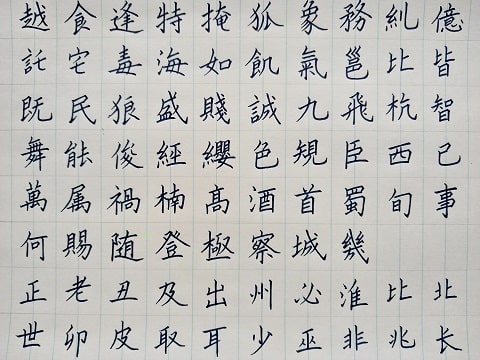 越食逢特掩狐象務糾億
託宅毒海如飢氣邕比皆
既民狼盛賤誠九飛杭智
舞能俊經纓色規臣西己
萬属禍楠髙酒首蜀旬事
何賜随登極察城幾
正老丑及出州必淮比北
世卯皮取耳少巫非兆长